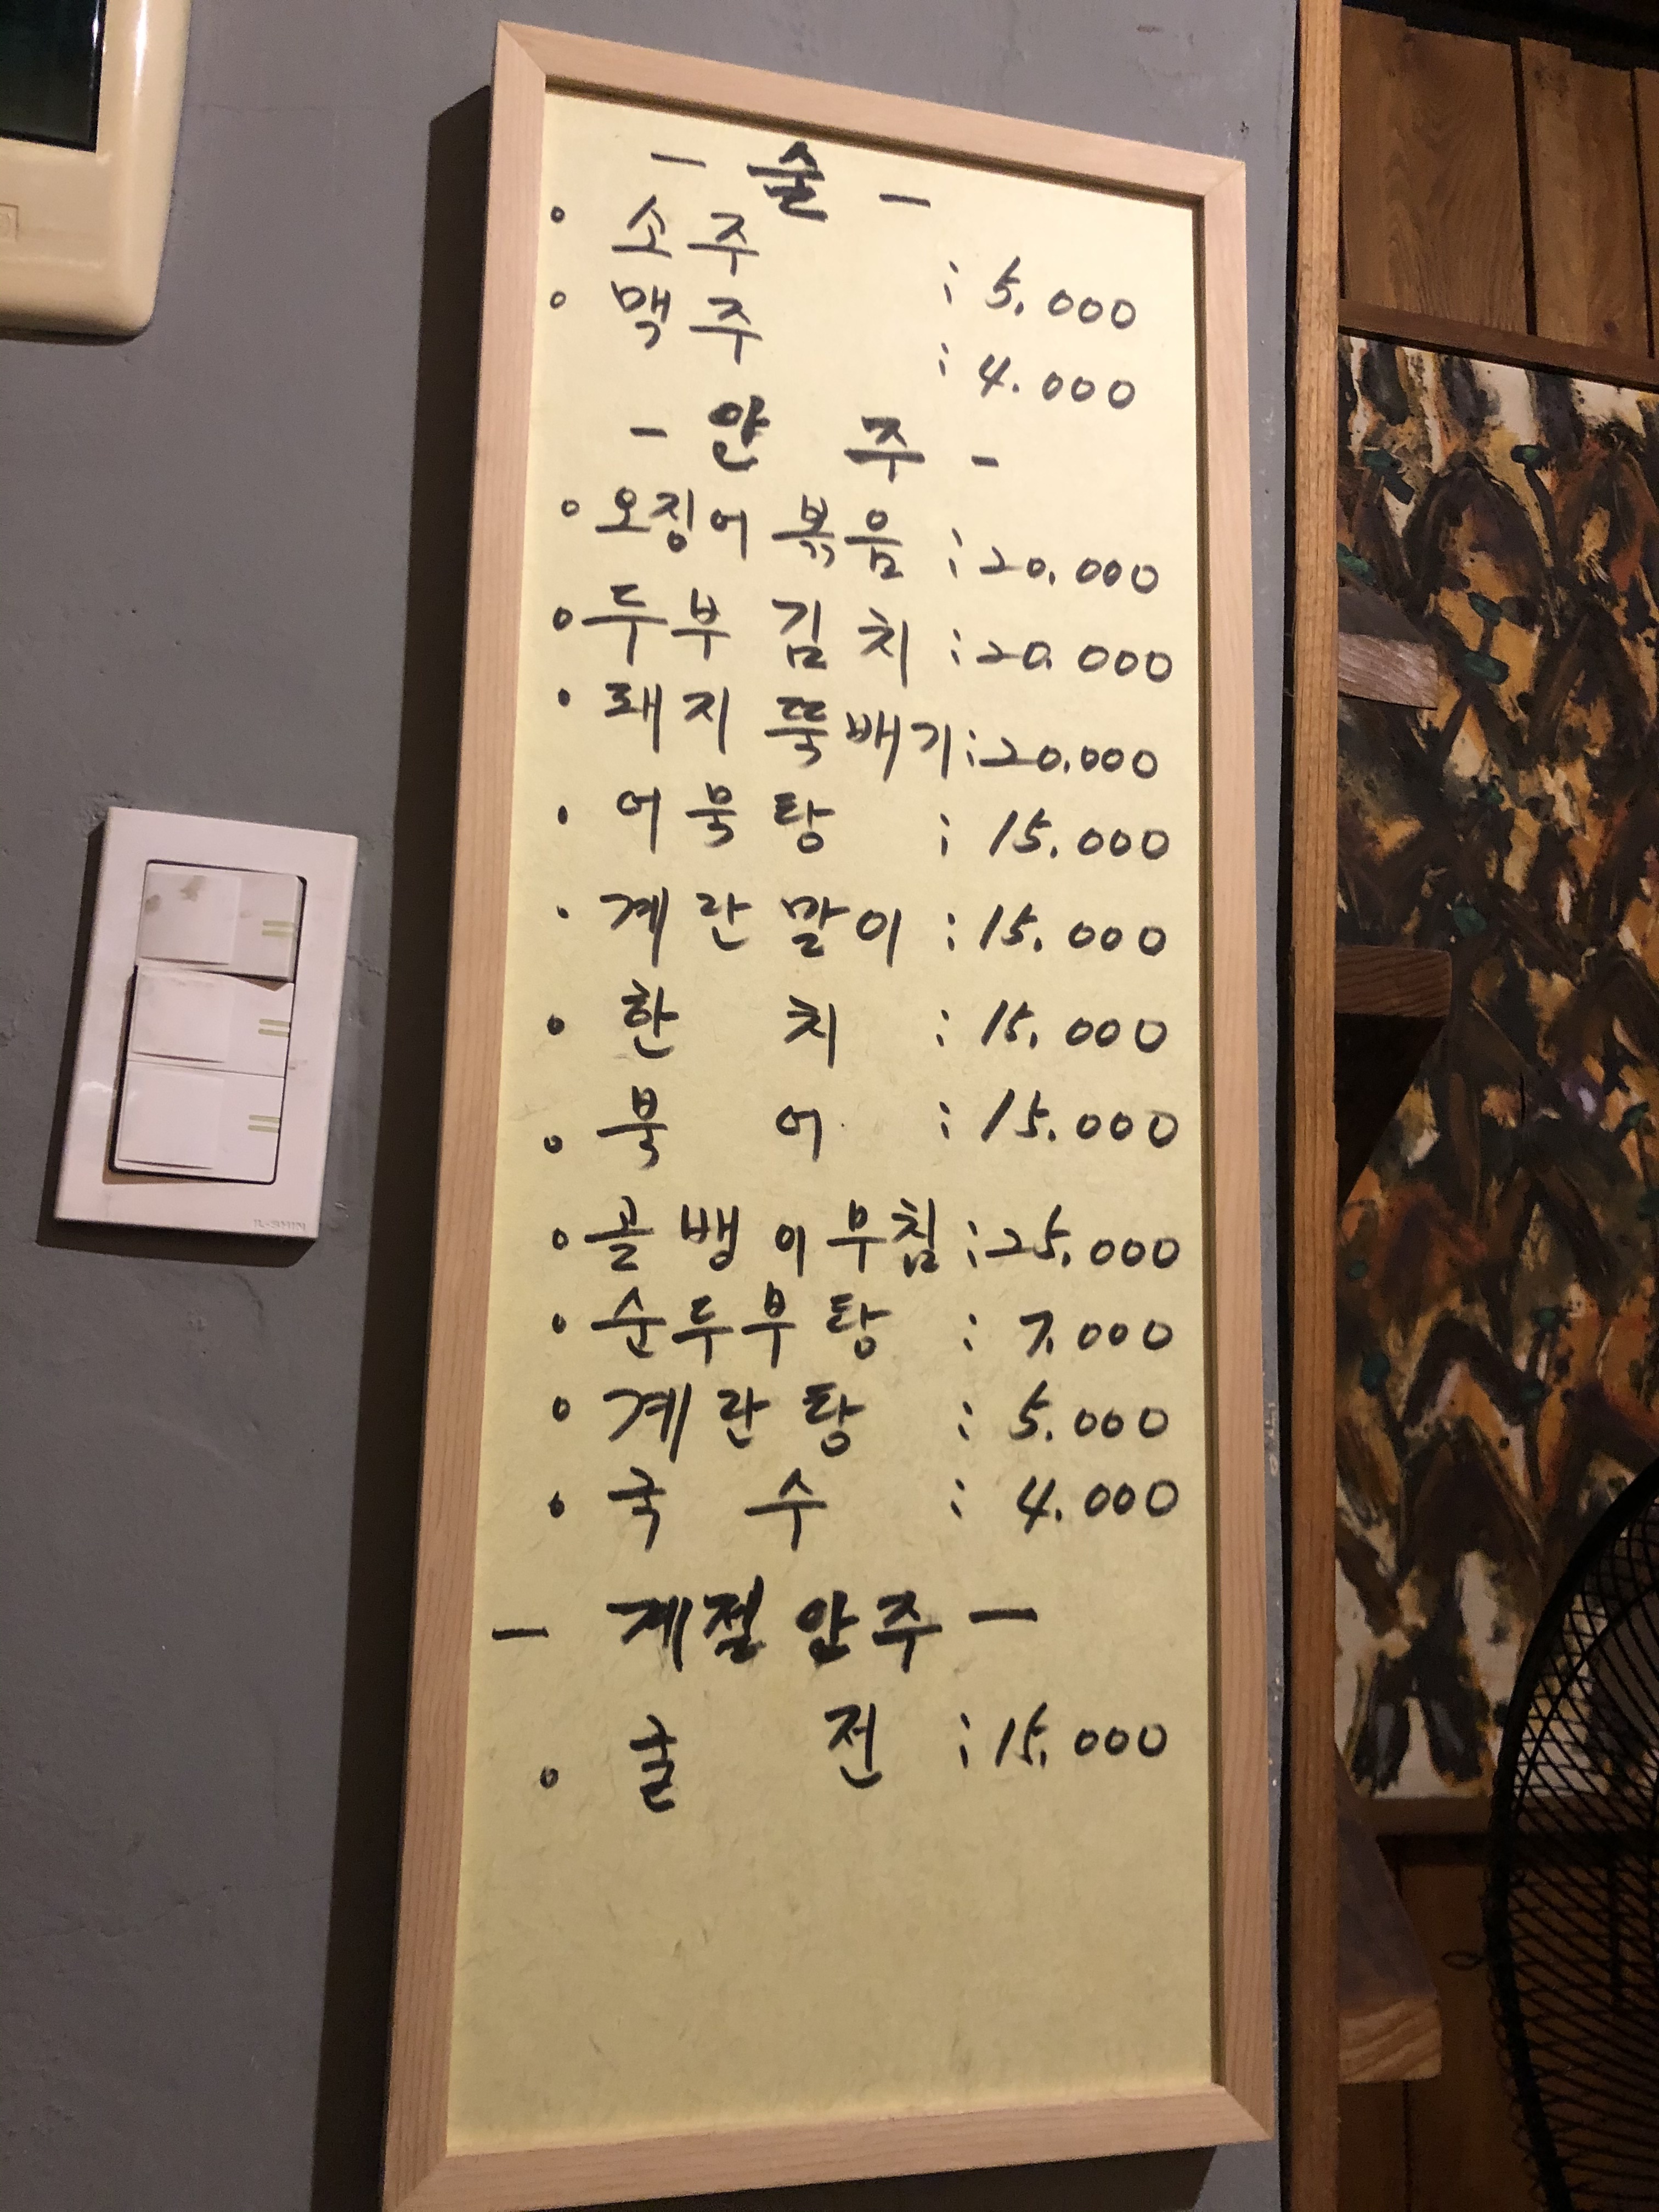 - 술 -
° 소주 : 5.000
° 맥주 : 4.000
- 안 주 -
° 오징어 볶음 : 20.000
° 두부 김치 : 20.000
° 돼지 뚝배기 : 20.000
· 어묵탕 : 15.000
· 계란말이 : 15.000
° 한 치 : 15.000
° 북 어 : 15.000
° 골뱅이무침 : 25.000
° 순두부탕 : 7.000
° 계란탕 : 5.000
° 국 수 : 4.000
- 계절안주 -
° 굴 전 : 15.000
IL-SHIN